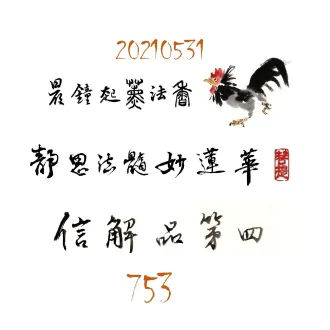 20210531
晨鐘起薰法香
靜思法髓妙蓮華
信解品第四
753